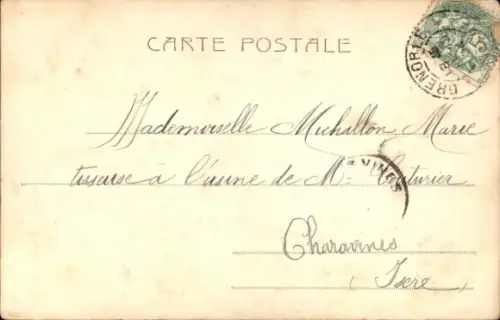 CARTE POSTALE
GRENOBLE
Mademoiselle Michallon Marie
tisseuse à l'usine de Mr Couturier
VINES
Charavines
(Isère)